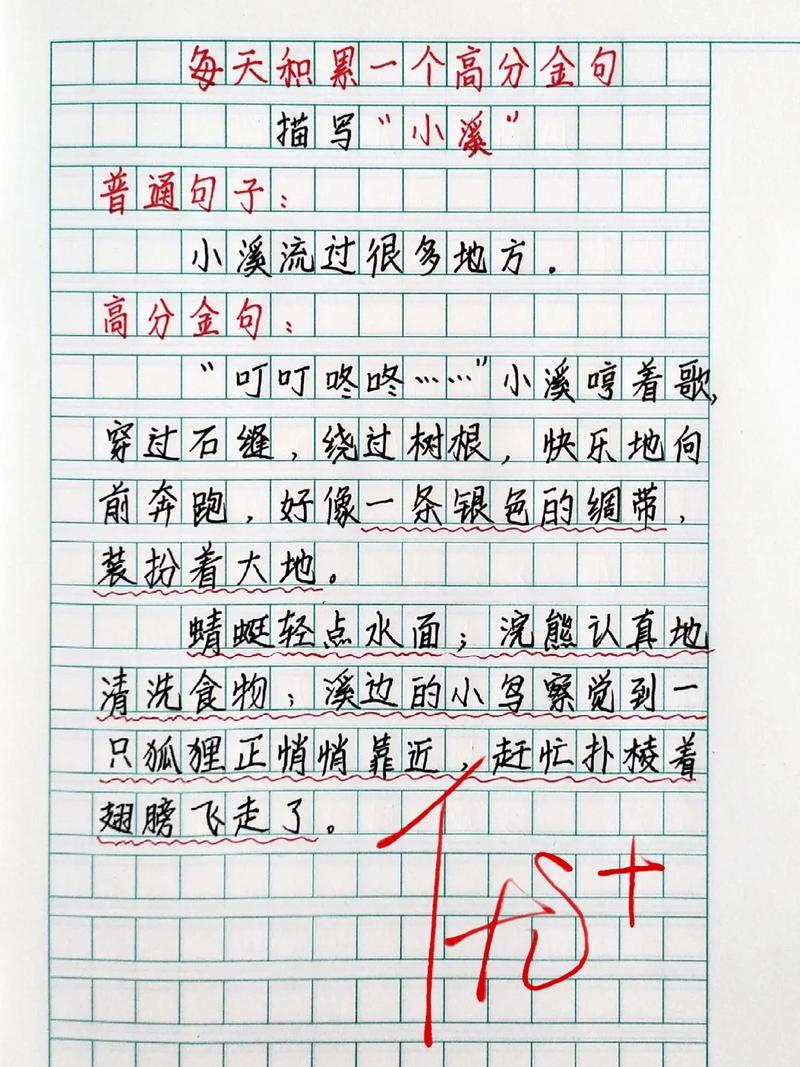 每天积累一个高分金句
描写“小溪”
普通句子：
小溪流过很多地方。
高分金句：
“叮叮咚咚……”小溪哼着歌，
穿过石缝，绕过树根，快乐地向
前奔跑，好像一条银色的绸带，
装扮着大地。
蜻蜓轻点水面；浣熊认真地
清洗食物；溪边的小鸟察觉到一
只狐狸正悄悄靠近，赶忙扑棱着
翅膀飞走了。
优+